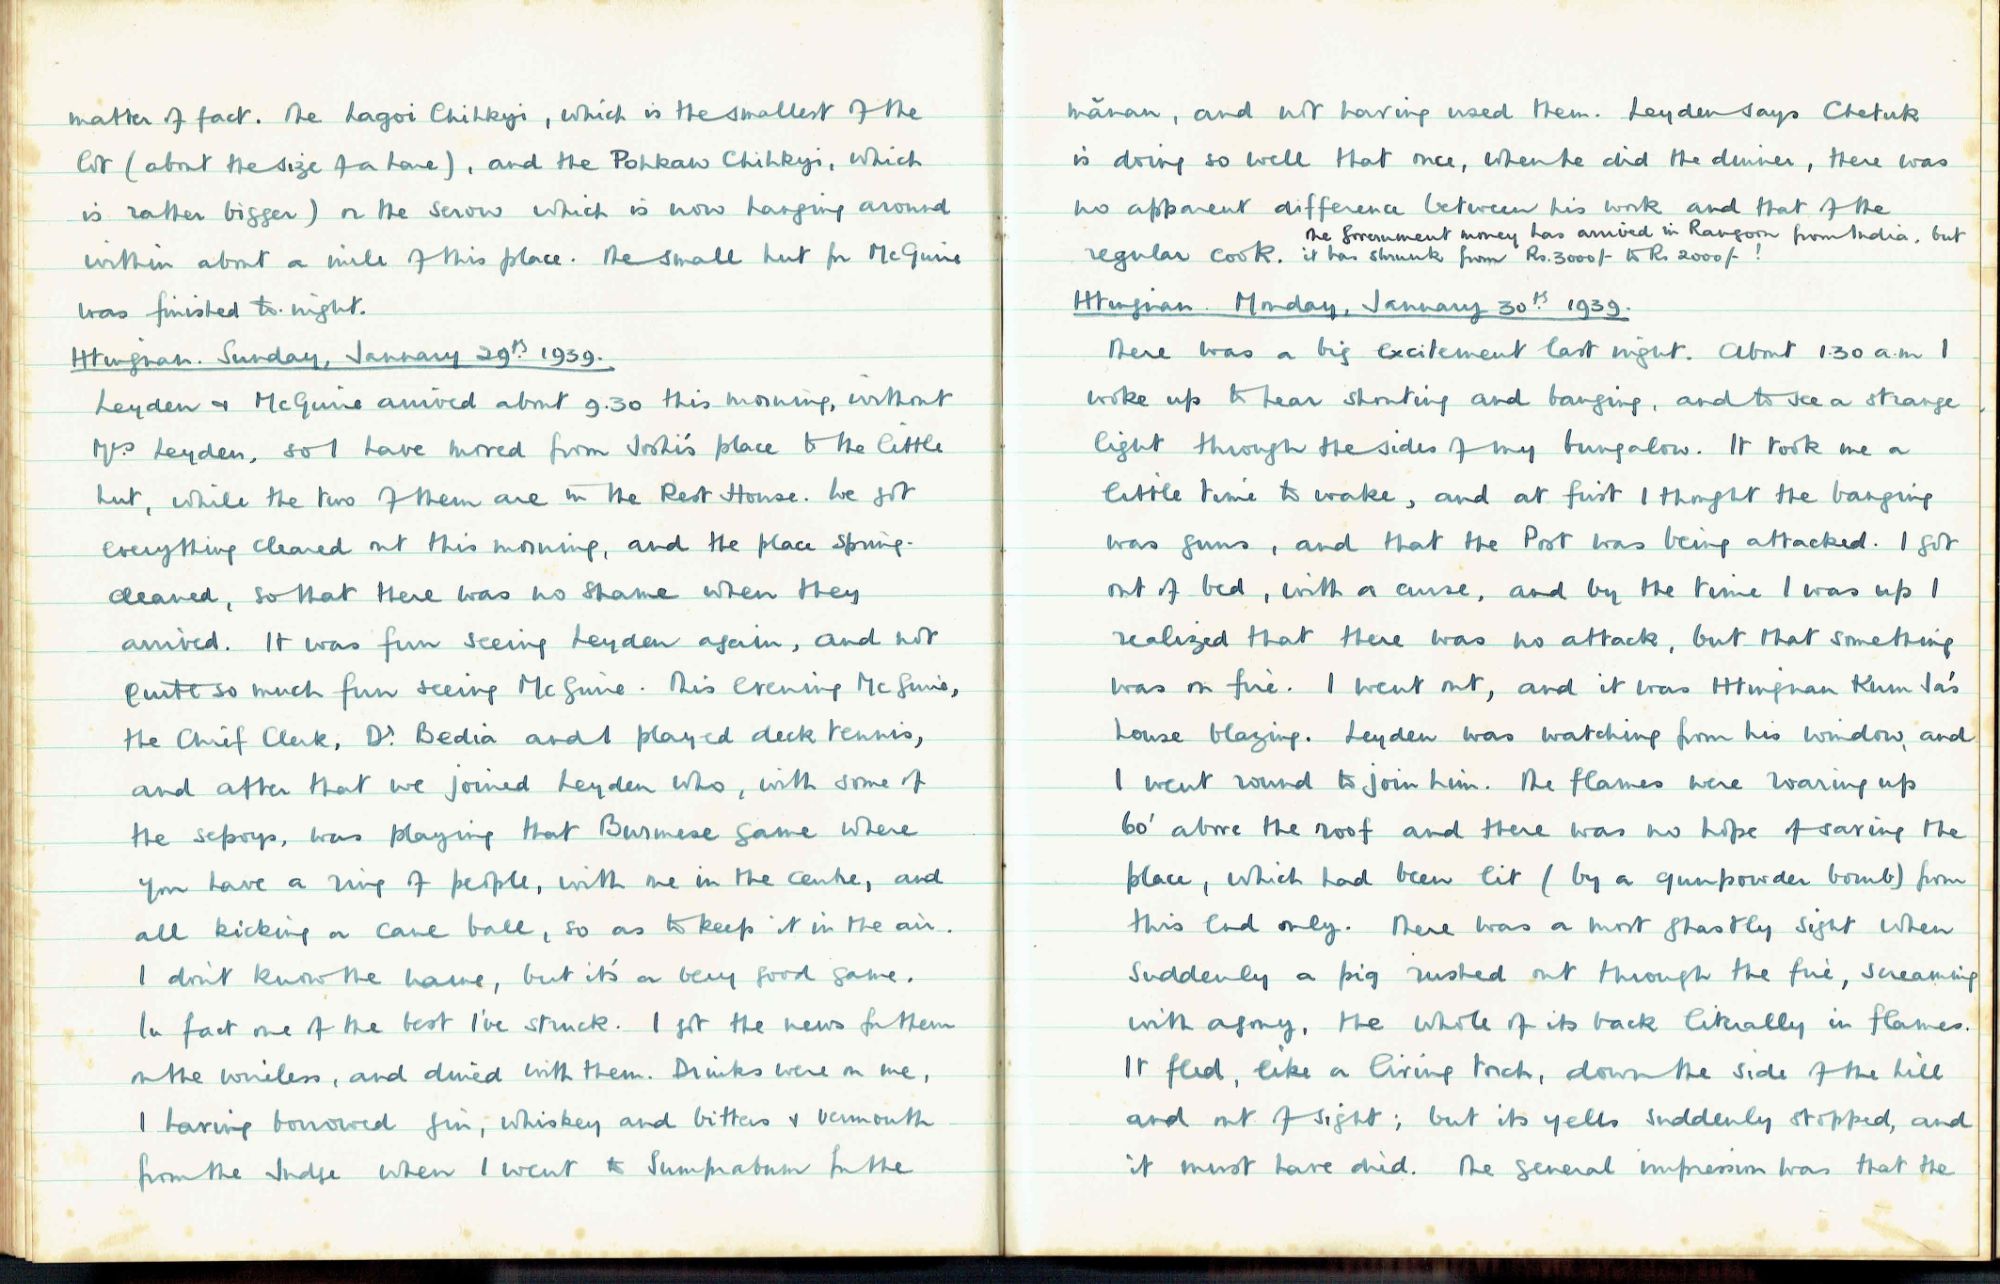 matter of fact. The Lagoi Chihkyi, which is the smallest of the
lot (about the size of a hare), and the Pohkaw Chihkyi, which
is rather bigger) or the serow which is now hanging around
within about a mile of this place. The small hut for McGuire
was finished to-night.
Htingnan. Sunday, January 29th 1939.
Leyden & McGuire arrived about 9.30 this morning, without
Mrs Leyden, so I have moved from Joshi's place to the little
hut, while the two of them are in the Rest House. We got
everything cleared out this morning, and the place spring-
cleaned, so that there was no shame when they
arrived. It was fun seeing Leyden again, and not
quite so much fun seeing McGuire. This evening McGuire,
the Chief Clerk, Dr. Bedia and I played deck tennis,
and after that we joined Leyden who, with some of
the sepoys, was playing that Burmese game where
you have a ring of people, with one in the centre, and
all kicking a cane ball, so as to keep it in the air.
I don't know the name, but it's a very good game.
In fact one of the best I've struck. I got the news for them
on the wireless, and dined with them. Drinks were on me,
I having borrowed gin, whiskey and bitters & vermouth
from the Judge when I went to Sumprabum for the
mănan, and not having used them. Leyden says Chetuk
is doing so well that once, when he did the dinner, there was
no apparent difference between his work and that of the
regular cook. The Government money has arrived in Rangoon from India, but
it has shrunk from Rs. 3000/- to Rs 2000/- !
Htingnan. Monday, January 30th 1939.
There was a big excitement last night. About 1.30 a.m I
woke up to hear shouting and banging, and to see a strange
light through the sides of my bungalow. It took me a
little time to wake, and at first I thought the banging
was guns, and that the Post was being attacked. I got
out of bed, with a curse, and by the time I was up I
realized that there was no attack, but that something
was on fire. I went out, and it was Htingnan Kum Ja's
house blazing. Leyden was watching from his window, and
I went round to join him. The flames were roaring up
60' above the roof and there was no hope of saving the
place, which had been lit (by a gunpowder bomb) from
this end only. There was a most ghastly sight when
suddenly a pig rushed out through the fire, screaming
with agony, the whole of its back literally in flames.
It fled, like a living torch, down the side of the hill
and out of sight; but its yells suddenly stopped, and
it must have died. The general impression was that the